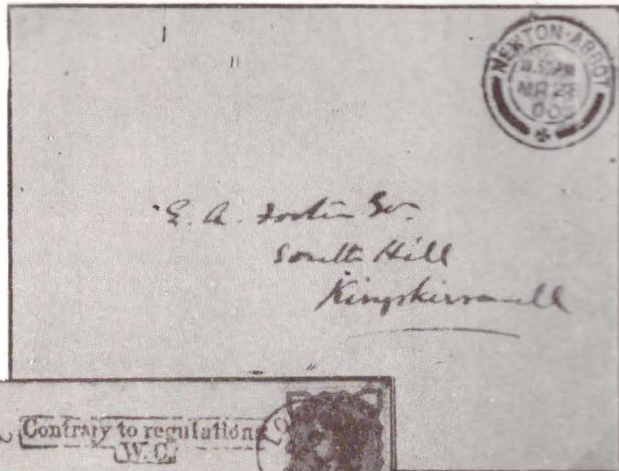 NEWTON-ABBOT
MR 28
00
E. A.
South Hill
Kingskerswell
Contrary to regulations
W.C.